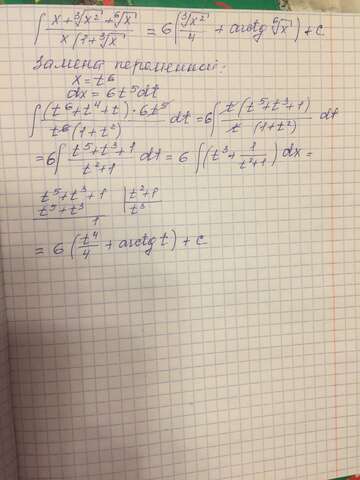 ∫ (x + ∛x² + ⁶√x) / (x (1 + ∛x)) = 6 (∛x² / 4 + arctg ⁶√x) + c
Замена переменной:
x = t⁶
dx = 6t⁵dt
∫ ((t⁶ + t⁴ + t) · 6t⁵) / (t⁶ (1 + t²)) dt = 6∫ (t (t⁵ + t³ + 1)) / (t (1 + t²)) dt
= 6∫ (t⁵ + t³ + 1) / (t² + 1) dt = 6 ∫ (t³ + 1 / (t² + 1)) dx =
t⁵ + t³ + 1 | t² + 1
t⁵ + t³ | t³
1
= 6 (t⁴ / 4 + arctg t) + c